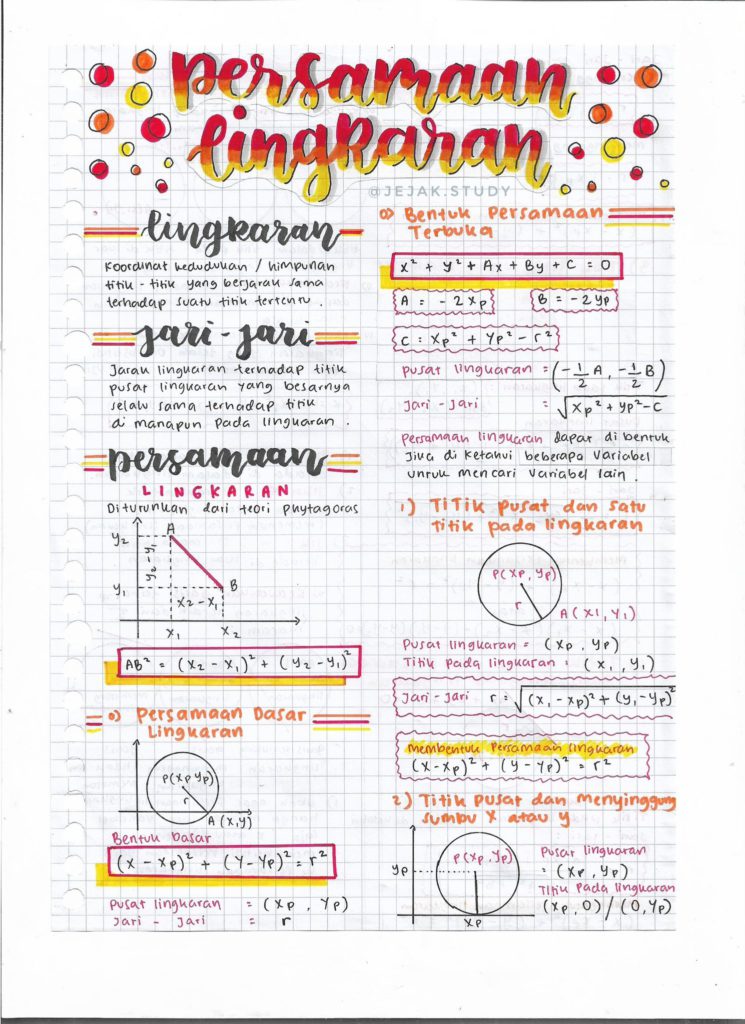 persamaan
lingkaran
@JEJAK.STUDY
lingkaran
Koordinat kedudukan / himpunan
titik - titik yang berjarak sama
terhadap suatu titik tertentu .
jari - jari
Jarak lingkaran terhadap titik
pusat lingkaran yang besarnya
selalu sama terhadap titik
di manapun pada lingkaran .
persamaan
LINGKARAN
Diturunkan dari teori phytagoras
y₂
y₂ - y₁
A
y₁
B
x₂ - x₁
x₁ x₂
AB² = (x₂ - x₁)² + (y₂ - y₁)²
Persamaan Dasar
Lingkaran
P(xp yp)
r
A (x,y)
Bentuk dasar
(x - xp)² + (y - yp)² = r²
Pusat lingkaran = (xp , yp)
Jari - Jari = r
Bentuk Persamaan
Terbuka
x² + y² + Ax + By + C = 0
A = - 2xp B = -2yp
C = xp² + yp² - r²
Pusat lingkaran = (-1/2 A, -1/2 B)
Jari - Jari = √xp² + yp² - C
Persamaan lingkaran dapat di bentuk
Jika di ketahui beberapa variabel
untuk mencari variabel lain .
1) Titik pusat dan satu
titik pada lingkaran
P(xp, yp)
r
A(x1, y1)
Pusat lingkaran = (xp , yp)
Titik pada lingkaran = (x₁ , y₁)
Jari - Jari r = √(x₁ - xp)² + (y₁ - yp)²
membentuk persamaan lingkaran
(x - xp)² + (y - yp)² = r²
2) Titik pusat dan menyinggung
sumbu x atau y
P(xp, yp)
yp
xp
Pusat lingkaran
= (xp , yp)
Titik pada lingkaran
(xp, 0) / (0, yp)